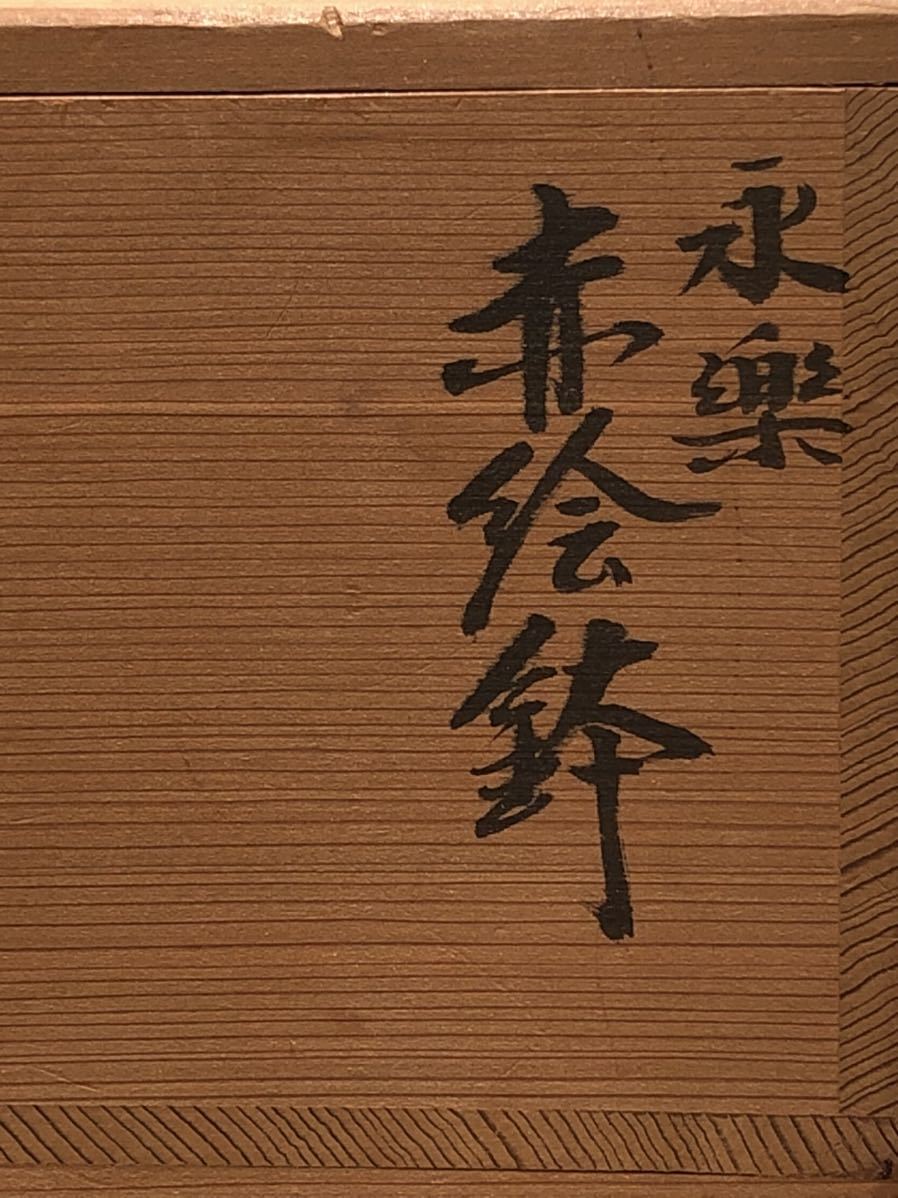 永樂
赤绘鉢